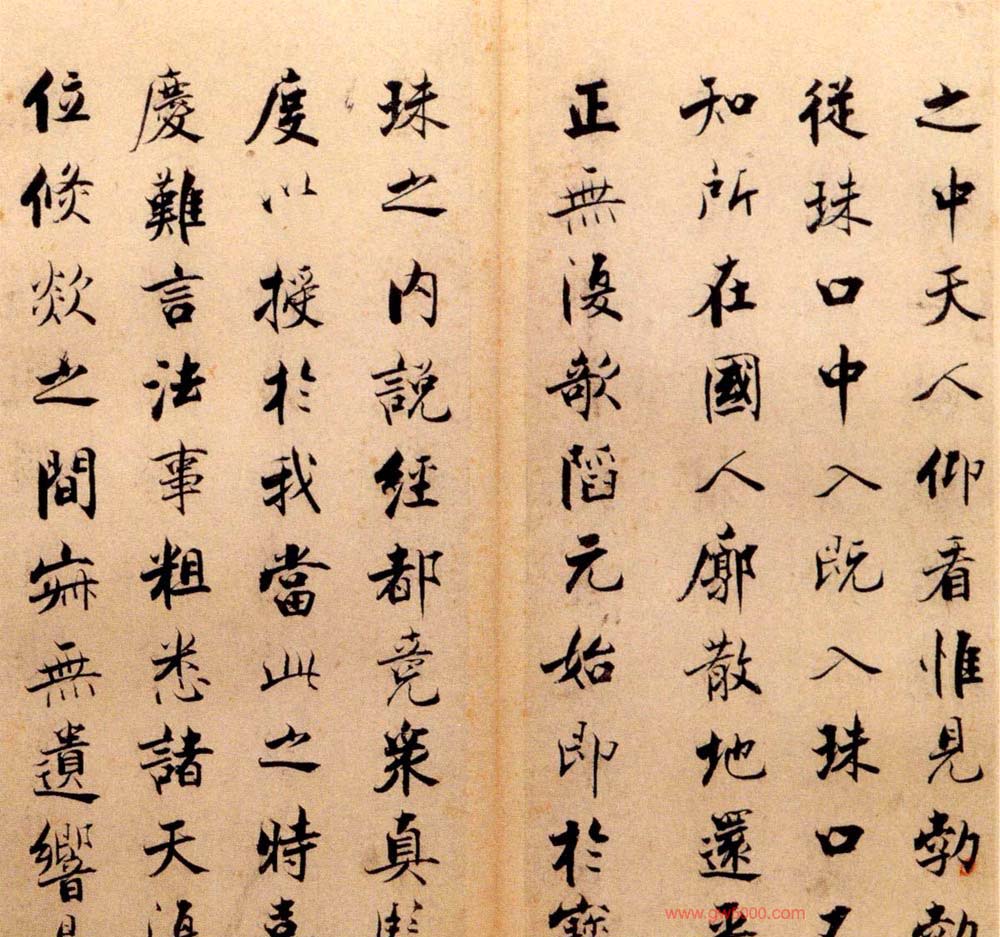 之中天人仰看惟見勃勃
從珠口中入既入珠口不
知所在國人廓散地還平
正無復欹陷元始即於寶
珠之內説經都竟衆真監
度以授於我當此之時喜
慶難言法事粗悉諸天復
位倏欻之間寂無遺響是
www.gw5000.com